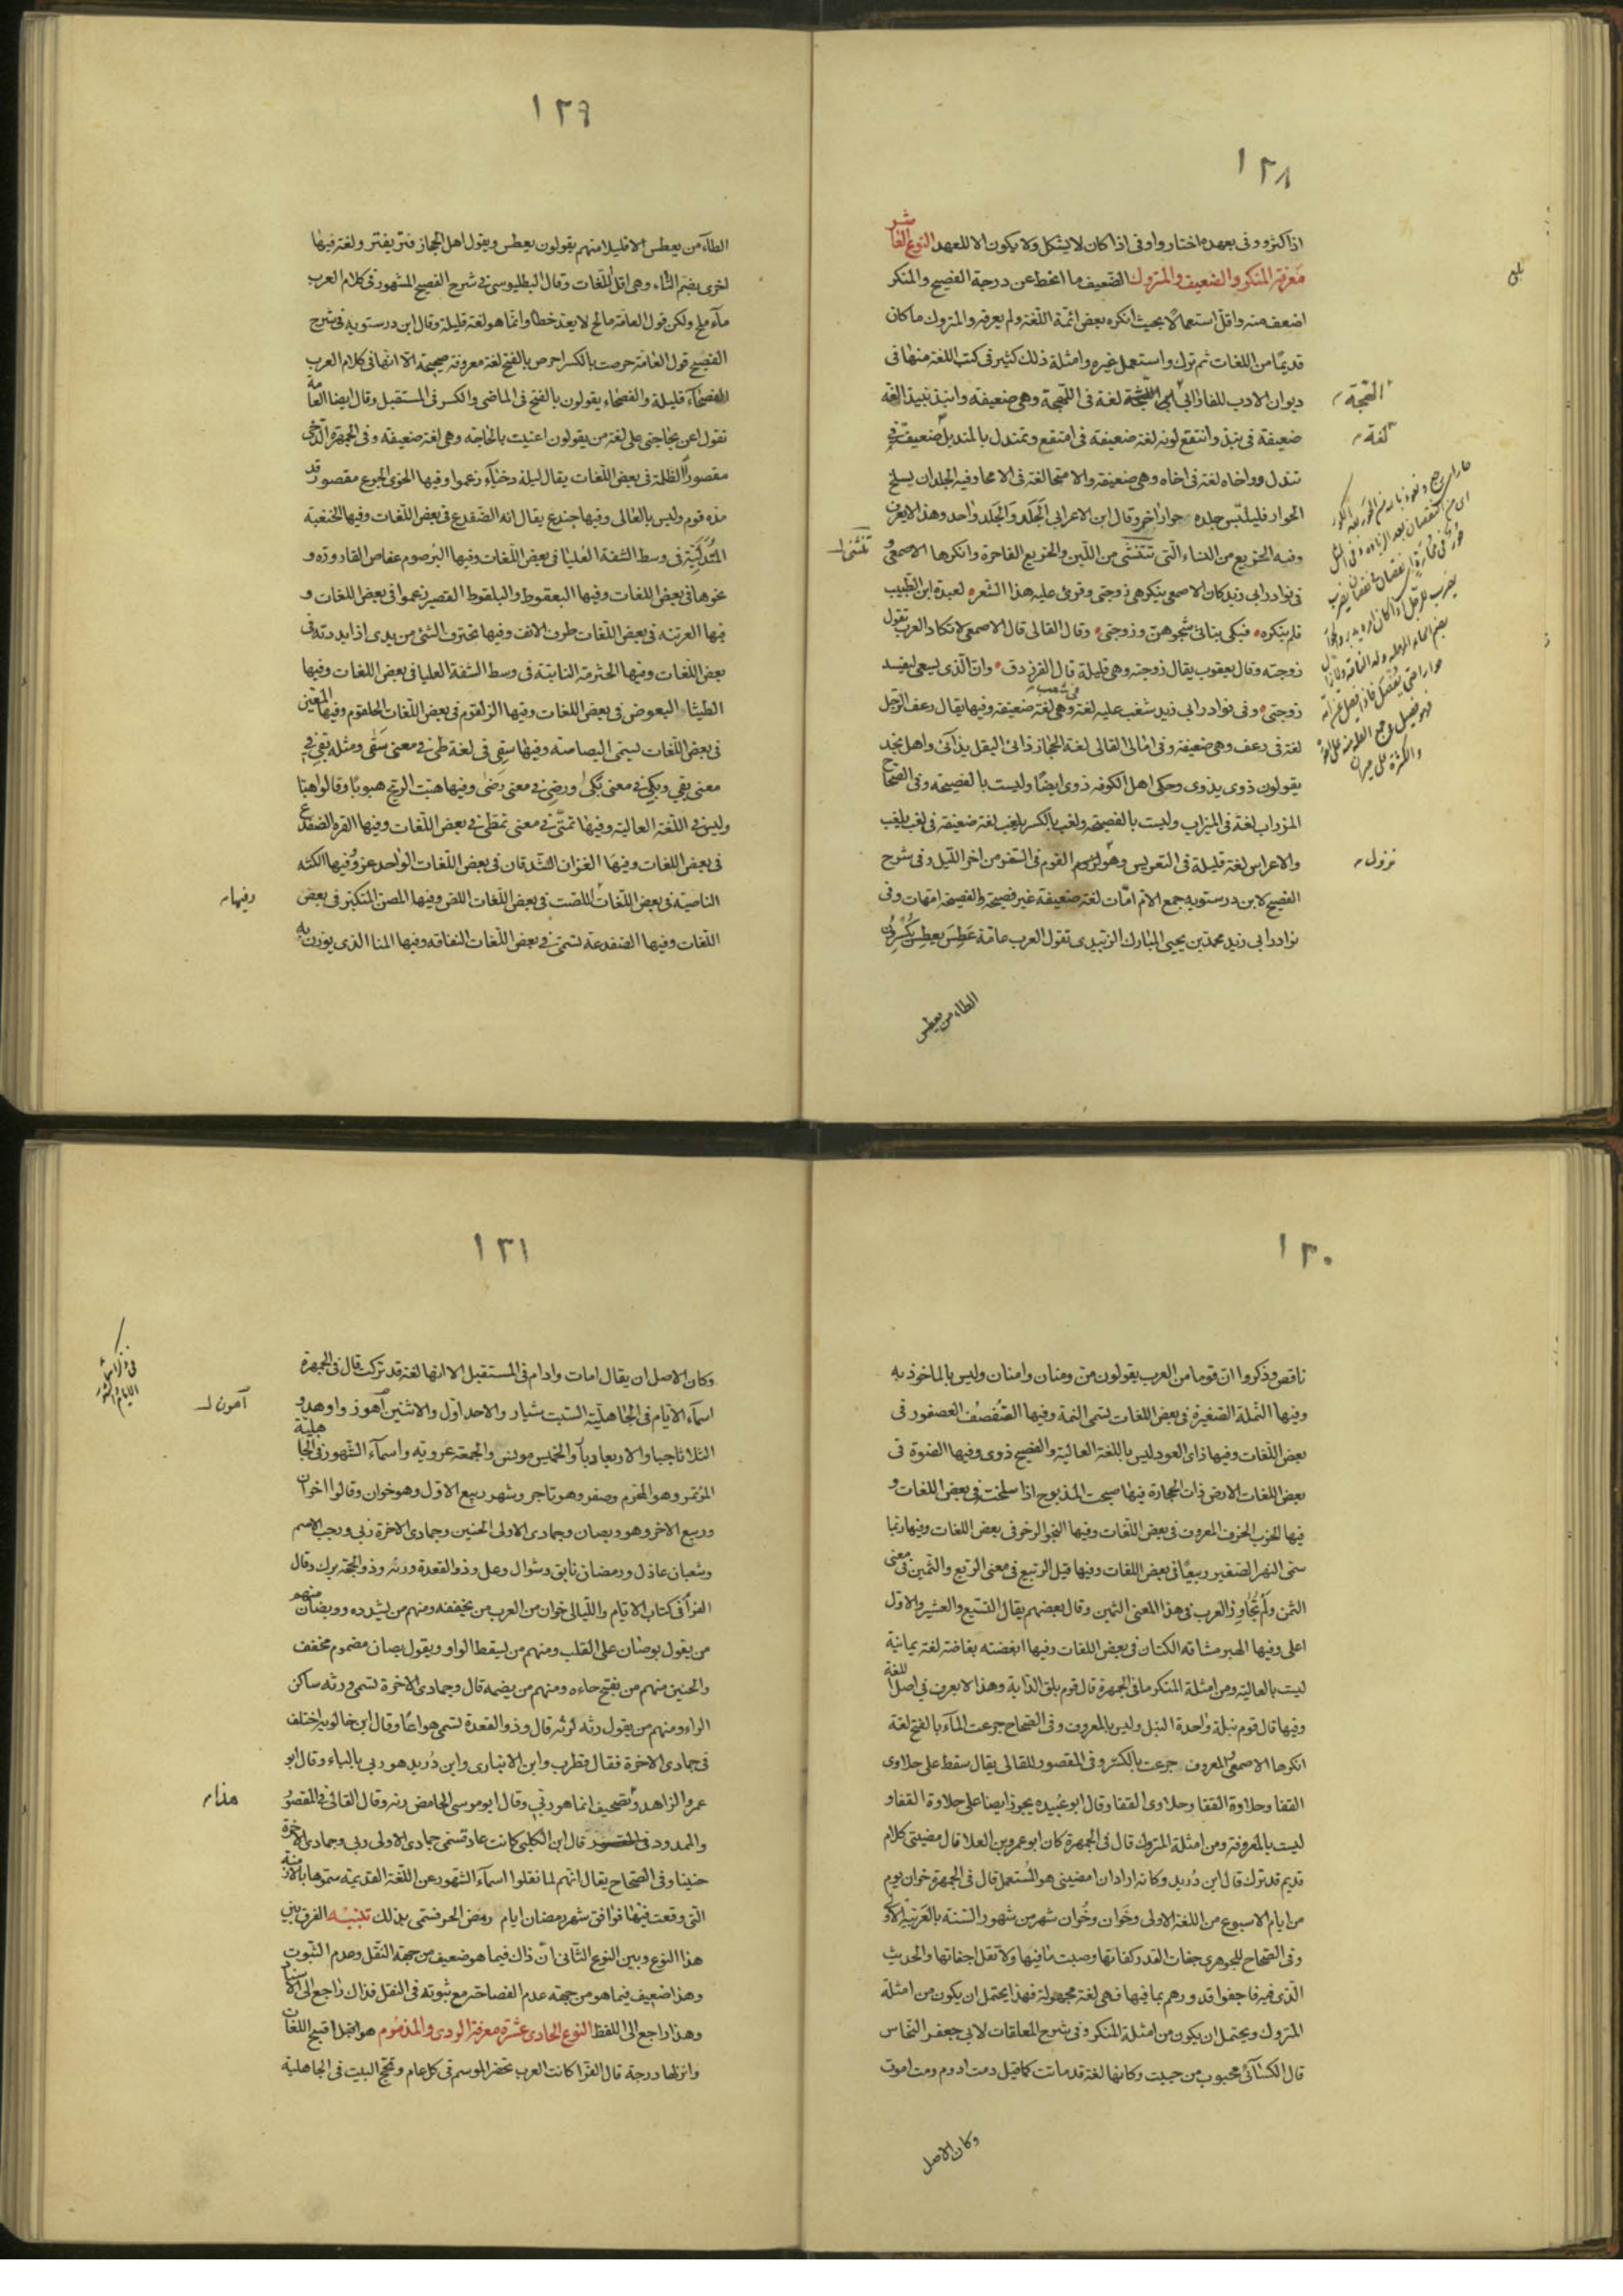 ١٢٨
اذا كثر ووفى بعهده اختار واوفى اذا كان لا يشكل ولا يكون الا للعهد النوع العاشر
معرفة المنكر والضعيف والمتروك الضعيف ما انحط عن درجة الفصيح والمنكر
اضعف منه واقل استعمالا بحيث انكره بعض ائمة اللغة ولم يعرفه والمتروك ما كان
قديما من اللغات ثم ترك واستعمل غيره وامثلة ذلك كثير فى كتب اللغة منها فى
ديوان الادب للفارابى لغة فى وهى ضعيفة وانبذ نبيذا لغة
ضعيفة فى نبذ وانتقع لونه لغة ضعيفة فى امتقع وتمندل بالمنديل ضعيفة فى
تندل وواخاه لغة فى اخاه وهى ضعيفة والامتحا لغة فى الامحا وفيه الجلد ان يسلخ
الحوار فيلبس جلده حوارا اخر وقال ابن الاعرابى الجَلَد والجلد واحد وهذا لا يعرف
وفيه الخريع من النساء التى تتثنى من اللين والخريع الفاجرة وانكرها الاصمعى و
فى نوادر ابى زيد كان الاصمعى ينكر هى زوجتى وقرئ عليه هذا الشعر لعبدة ابن الطبيب
فلم ينكره فبكى بناتى شجوهن وزوجتى وقال القالى قال الاصمعى لا تكاد العرب تقول
زوجته وقال يعقوب يقال زوجته وهى قليلة قال الفرزدق وان الذى يسعى ليفسد
زوجتى وفى نوادر ابى زيد شغب عليه لغة فى شغب وهى لغة ضعيفة وفيها يقال رعف الرجل
لغة فى رعف وهى ضعيفة وفى امالى القالى لغة الحجاز ذاى البقل يذاى واهل نجد
يقولون ذوى يذوى وحكى اهل الكوفه ذوى ايضا وليست بالفصيحه وفى الصحاح
المزراب لغة فى الميزاب وليست بالفصيحه ولغب بالكسر يلغب لغة ضعيفة فى لغب يلغب
والاعراس لغة قليلة فى التعريس وهو القوم فى السفر من اخر الليل وفى شرح
الفصيح لابن درستويه جمع الام امّات لغة ضعيفة غير فصيحة والفصيحة امهات وفى
نوادر ابى زيد محمد بن يحيى المبارك الزيدى تقول العرب عامة عَطِسَ يعطِس يكسرون
لغة
نزول
تتثنى
الطاء من يعطس
١٢٩
الطاء من يعطس الا قليلا منهم يقولون يعطس ويقول اهل الحجاز فتر يفتر ولغة فيها
اخرى يضم التاء وهى اقل اللغات وقال البطليوسى فى شرح الفصيح المشهور فى كلام العرب
ماء ملح ولكن قول العامة مالح لا يعد خطا وانما هو لغة قليلة وقال ابن درستويه فى شرح
الفصيح قول العامة حرصت بالكسر احرص بالفتح لغة معروفة صحيحة الا انها فى كلام العرب
الفصحاء قليلة والفصحاء يقولون بالفتح فى الماضى والكسر فى المستقبل وقال ايضا العامة
تقول اعن بحاجتى على لغة من يقولون اعنيت بالحاجه وهى لغة ضعيفة وفى الجمهرة الدخى
مقصورا الظلمة فى بعض اللغات يقال ليلة دخياء زعموا وفيها الخوى الجوع مقصور قد
مده قوم وليس بالعالى وفيها جندع يقال انه الضفدع فى بعض اللغات وفيها الخنعبة
المتدلية فى وسط الشفة العليا فى بعض اللغات وفيها البرصوم عفاص القارورة و
نحوها فى بعض اللغات وفيها البعقوط والبلقوط القصير زعموا فى بعض اللغات و
فيها العرتنه فى بعض اللغات طرف الانف وفيها تخترف الشئ من يدى اذا بددته فى
بعض اللغات وفيها الحثرمة الناتئة فى وسط الشفة العليا فى بعض اللغات وفيها
الطيثار البعوض فى بعض اللغات وفيها الزلقوم فى بعض اللغات الحلقوم وفيها
فى بعض اللغات يسمى البصاصه وفيها سِقى فى لغة طى فى معنى سَقى ومثله بَقى فى
معنى بقى وبكى فى معنى بكى ورضى فى معنى رضى وفيها هبت الريح هبوبا وقالوا هبا
وليس فى اللغة العالية وفيها تمتى فى معنى تمطى فى بعض اللغات وفيها القره الضفدع
فى بعض اللغات وفيها الغزان الشدقان فى بعض اللغات الواحد غز وفيها الكثه
الناصية فى بعض اللغات اللصت فى بعض اللغات اللص وفيها المصن المتكبر فى بعض
اللغات وفيها الضفدعة تسمى فى بعض اللغات النقاقه وفيها المنا الذى يوزن به
وفيها
١٣٠
ناقص وذكروا ان قوما من العرب يقولون من ومنان وامنان وليس بالماخوذ به
وفيها النملة الصغيرة فى بعض اللغات تسمى النمة وفيها الصُفصُف العصفور فى
بعض اللغات وفيها ذاى العود ليس باللغة العالية والفصيح ذوى وفيها الضوة فى
بعض اللغات الارض ذات الحجارة فيها صبحت المذبوح اذا سلخته فى بعض اللغات و
فيها الخزب الخزف المعروف فى بعض اللغات وفيها النجو الرخو فى بعض اللغات وفيها ربما
سمى النهر الصغير ربيعا فى بعض اللغات وفيها قيل الربيع فى معنى الربع والثمين فى معنى
الثمن ولم تجاوز العرب فى هذا المعنى الثمين وقال بعضهم يقال التسيع والعشير والاول
اعلى وفيها الهبر مشاقه الكتان فى بعض اللغات وفيها ابغضته بغاضة لغة يمانية
ليست بالعالية ومن امثلة المنكر ما فى الجمهرة قال قوم بلق الدابة وهذا لا يعرف فى اصل اللغة
وفيها قال قوم نبلة واحدة النبل وليس بالمعروف وفى الصحاح جرعت الماء بالفتح لغة
انكرها الاصمعى والمعروف جرعت بالكسر وفى المقصور للقالى يقال سقط على حلاوى
القفا وحلاوة القفا وحلاوى القفا وقال ابو عبيده يجوز ايضا على حلاوة القفا و
ليست بالمعروفة ومن امثلة المتروك قال فى الجمهرة كان ابو عمرو بن العلا قال مضنى كلام
قديم قد ترك قال ابن دريد وكانه اراد ان امضنى هو المستعمل قال فى الجمهرة خوان يوم
من ايام الاسبوع من اللغة الاولى وخَوان وخُوان شهر من شهور السنة بالعربية الاولى
وفى الصحاح للجوهرى جفات القدر كفاتها وصبت ما فيها ولا تقل اجفاتها والحديث
الذى فيه فاجفوا قدورهم بما فيها فهى لغة مجهولة فهذا يحتمل ان يكون من امثلة
المتروك ويحتمل ان يكون من امثلة المنكر وفى شرح المعلقات لابى جعفر النحاس
قال الكسائى محبوب من حببت وكانها لغة قد ماتت كما قيل دمت ادوم ومت اموت
وكان الاصل
١٣١
وكان الاصل ان يقال امات وادام فى المستقبل الا انها لغة قد تركت قال فى الجمهرة
اسماء الايام فى الجاهلية السبت شيار والاحد اول والاثنين آهون واوهد و
الثلاثا جبار والاربعا دبار والخميس مونس والجمعة عروبه واسماء الشهور فى الجاهلية
المؤتمر وهو المحرم وصفر وهو تاجر وشهر ربيع الاول وهو خوان وقالوا اخوان
وربيع الاخر وهو وبصان وجمادى الاولى الحنين وجمادى الاخرة ربى ورجب الاصم
وشعبان عاذل ورمضان ناتق وشوال وعل وذو القعدة ورنه وذو الحجة برك وقال
الفرا فى كتاب الايام والليالى خوان من العرب من يخففه ومنهم من يشدده ووبصان منهم
من يقول بوصان على القلب ومنهم من يسقط الواو ويقول بصان مضموم مخفف
والحنين منهم من يفتح حاءه ومنهم من يضمه قال وجمادى الاخرة تسمى ورنه ساكن
الراء ومنهم من يقول رنه قال وذو القعدة تسمى هواعا وقال ابن خالويه اختلف
فى جمادى الاخرة فقال قطرب وابن الانبارى وابن دريد هو ربى بالباء وقال ابو
عمرو الزاهد تصحيف انما هو رنى وقال ابو موسى الحامض رنه وقال القالى فى المقصور
والممدود قال ابن الكلبى كانت عاد تسمى جمادى الاولى ربى وجمادى الاخرة
حنينا وفى الصحاح يقال انهم لما نقلوا اسماء الشهور عن اللغة القديمة سموها بالازمنة
التى وقعت فيها فوافق شهر رمضان ايام رمض الحر فسمى بذلك تنبيه الفرق بين
هذا النوع وبين النوع الثانى ان ذاك فيما هو ضعيف من جهة النقل وعدم الثبوت
وهذا ضعيف فيما هو من جهه عدم الفصاحة مع ثبوته فى النقل فذاك راجع الى الاسناد
وهذا راجع الى اللفظ النوع الحادى عشر معرفة الردى والمذموم هو ايضا اقبح اللغات
وانزلها درجة قال الفرا كانت العرب تحضر الموسم فى كل عام وتحج البيت فى الجاهلية
آهون
هذا